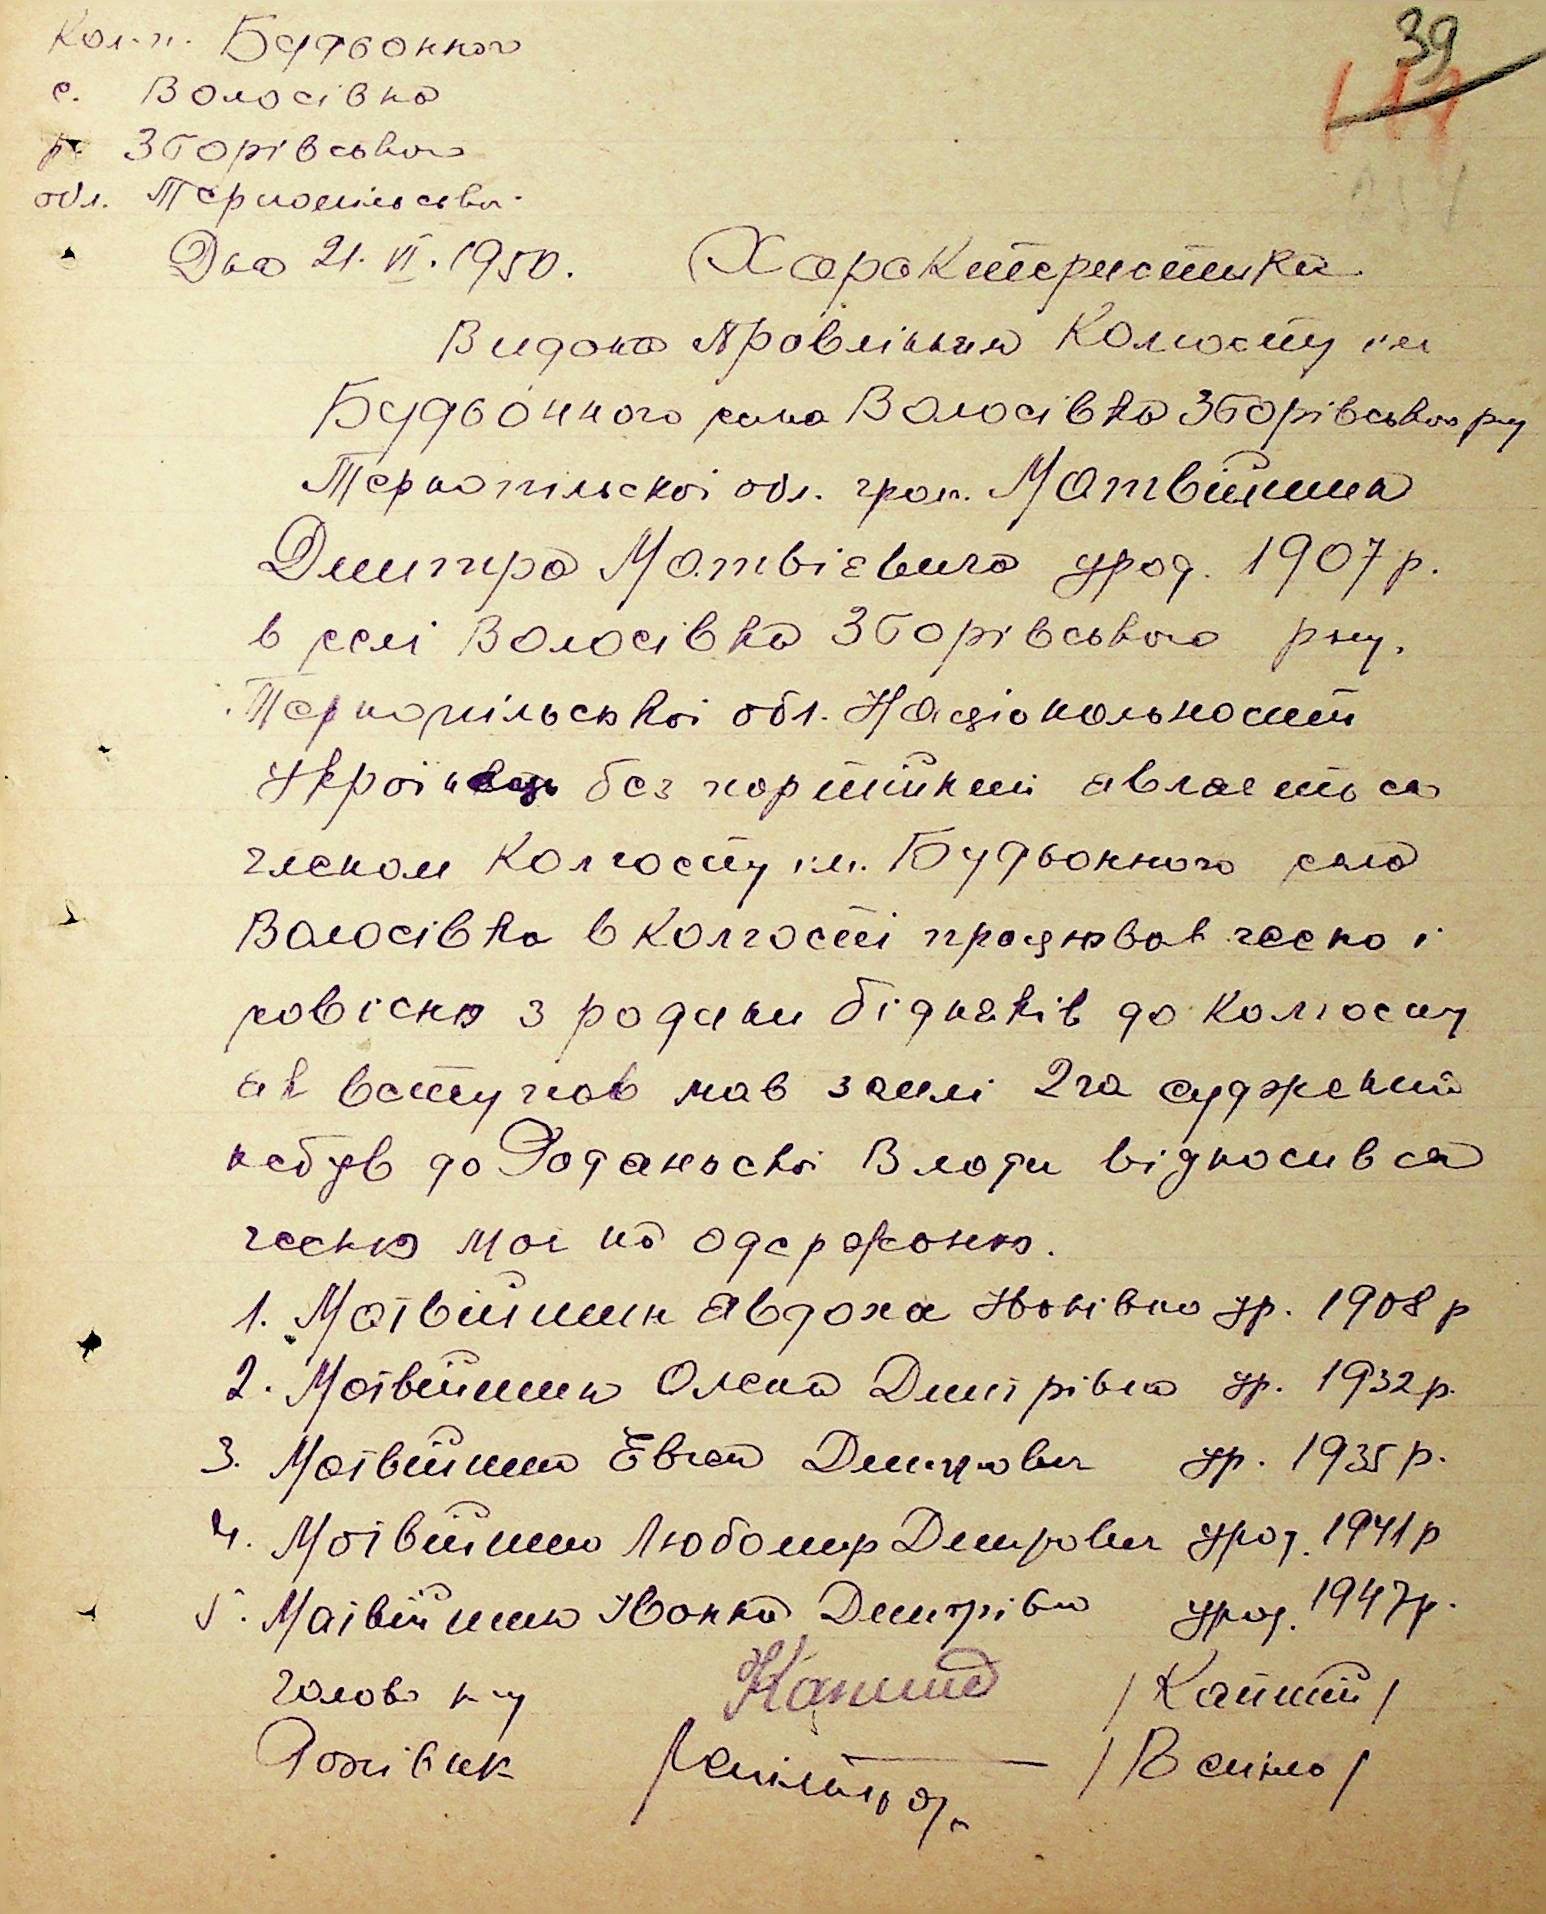 39
Кол-п. Будьонного
с. Волосівка
р. Зборівського
обл. Тернопільська.
Дна 21. VI. 1950. Характеристика
Видана Правлінням Колгоспу ім
Будьонного села Волосівка Зборівського р-ну
Тернопільскої обл. гром. Матвіїшина
Дмитра Матвієвича урод. 1907 р.
в селі Волосівка Зборівського рну.
Тернопільської обл. Національності
Українець без портійний являється
членом Колгоспу ім. Будьонного села
Волосівка в Колгоспі працював чесно і
совісно з родини бідняків до Колгоспу
як вступав мав землі 2 га суджений
небув до Радянської Влади відносився
чесно має на одержаню.
1. Матвіїшин Явдоха Іванівна ур. 1908 р
2. Матвіїшин Олена Дмитрівна ур. 1932 р.
3. Матвіїшин Евген Дмитрович ур. 1935 р.
4. Матвіїшин Любомир Дмитрович урод. 1941 р
5. Матвіїшин Іванна Дмитрівна урод. 1947 р.
Голова к-у /